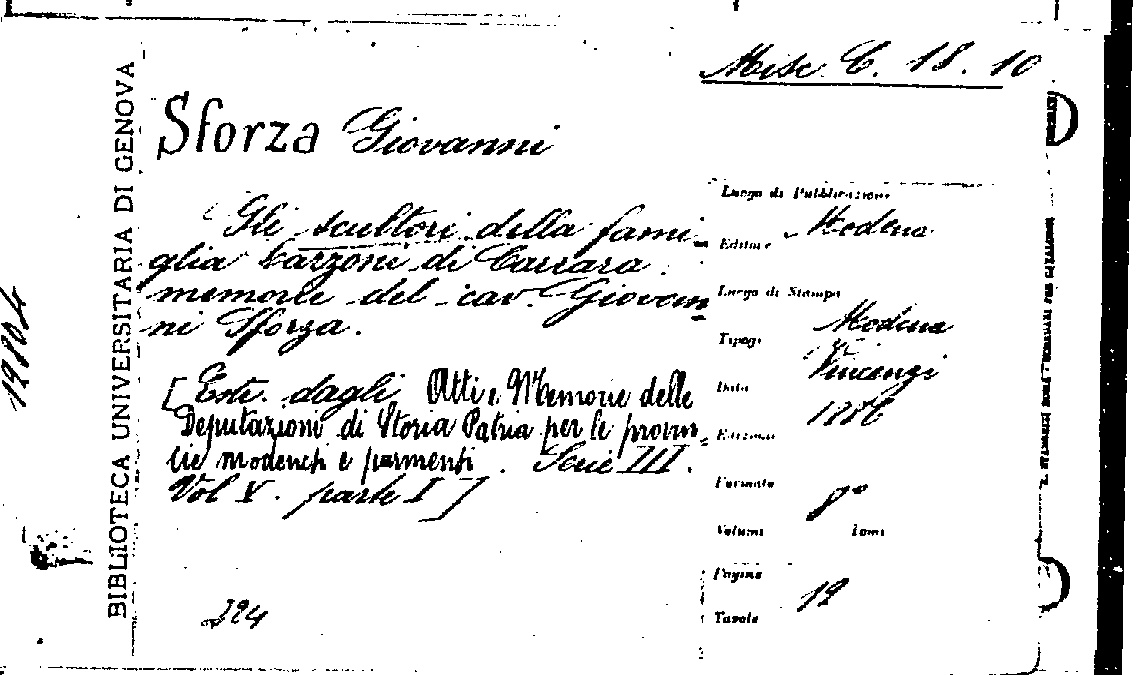 Misc. C. 18. 10
BIBLIOTECA UNIVERSITARIA DI GENOVA
Sforza Giovanni
Gli scultori della fami-
glia Lazzoni di Carrara.
memorie del cav. Giovan=
ni Sforza.
[Estr. dagli Atti e Memorie delle
Deputazioni di Storia Patria per le provin=
cie modenesi e parmensi. Serie III.
Vol V. parte I]
224
Luogo di Pubblicazione
Modena
Editore
Luogo di Stampa
Modena
Tipogr.
Vincenzi
Data
1886
Edizione
Formato
8°
Volumi Tomi
Pagine
19
Tavole